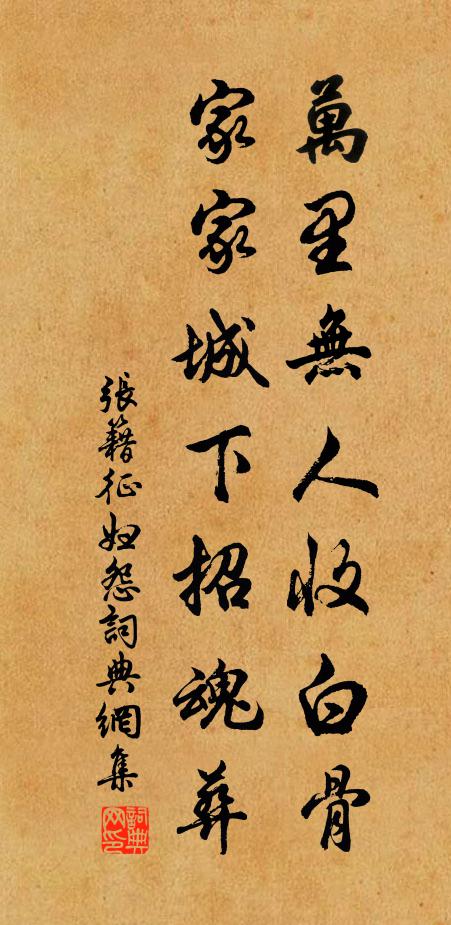 萬里無人收白骨
家家城下招魂葬
張籍征妇怨詞典網集
詞典网印